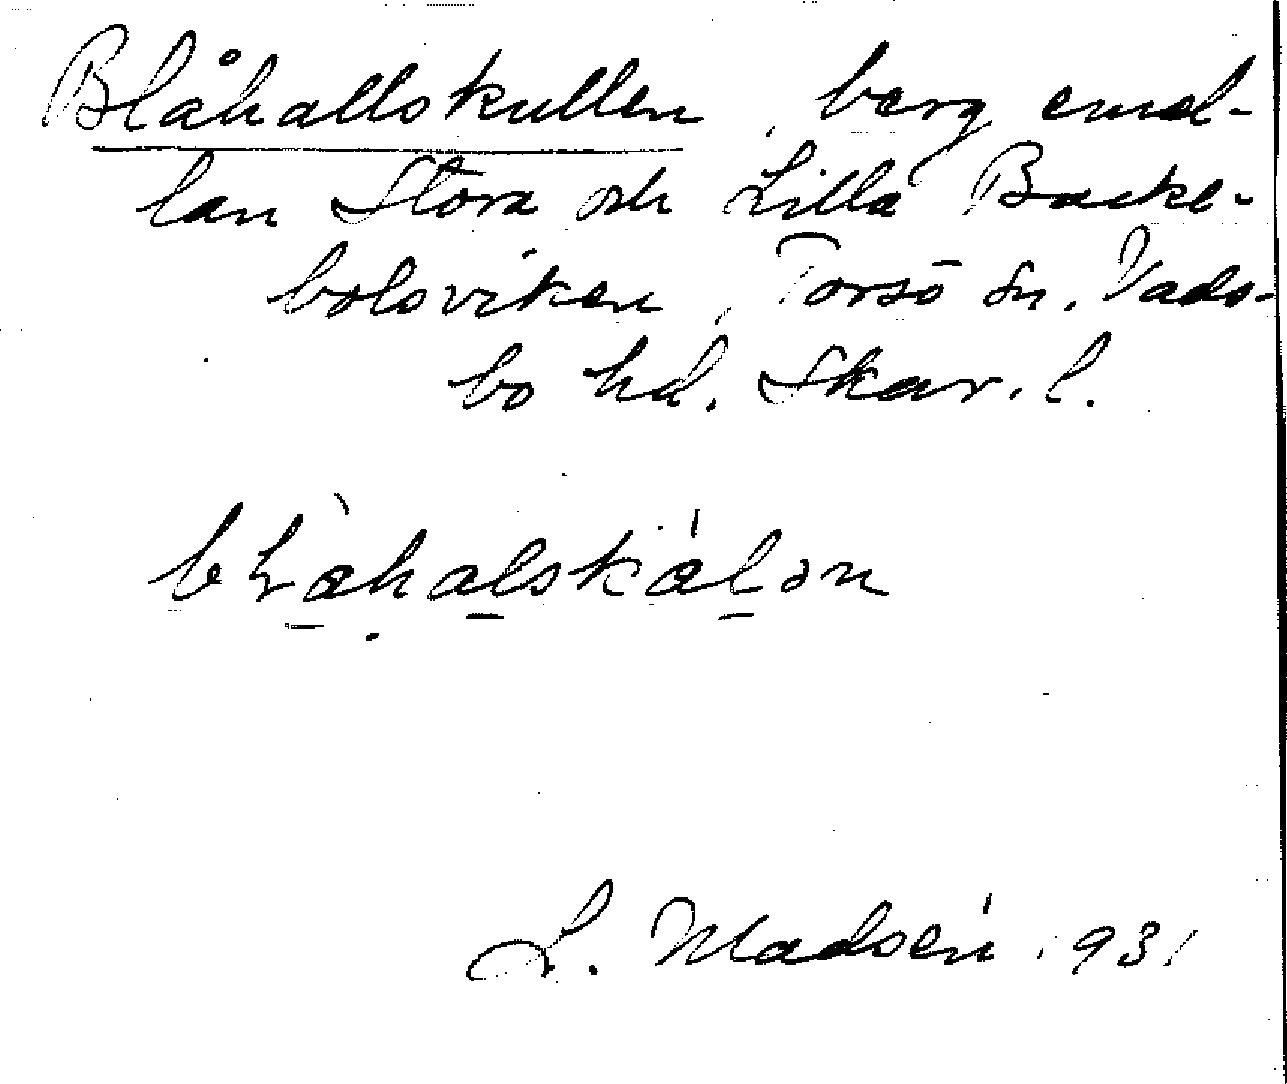 Blåhallskullen, berg emel-
lan Stora och Lilla Backe-
bolsviken, Torsö sn. Vads-
bo hd. Skar. l.
L. Madsén 1931